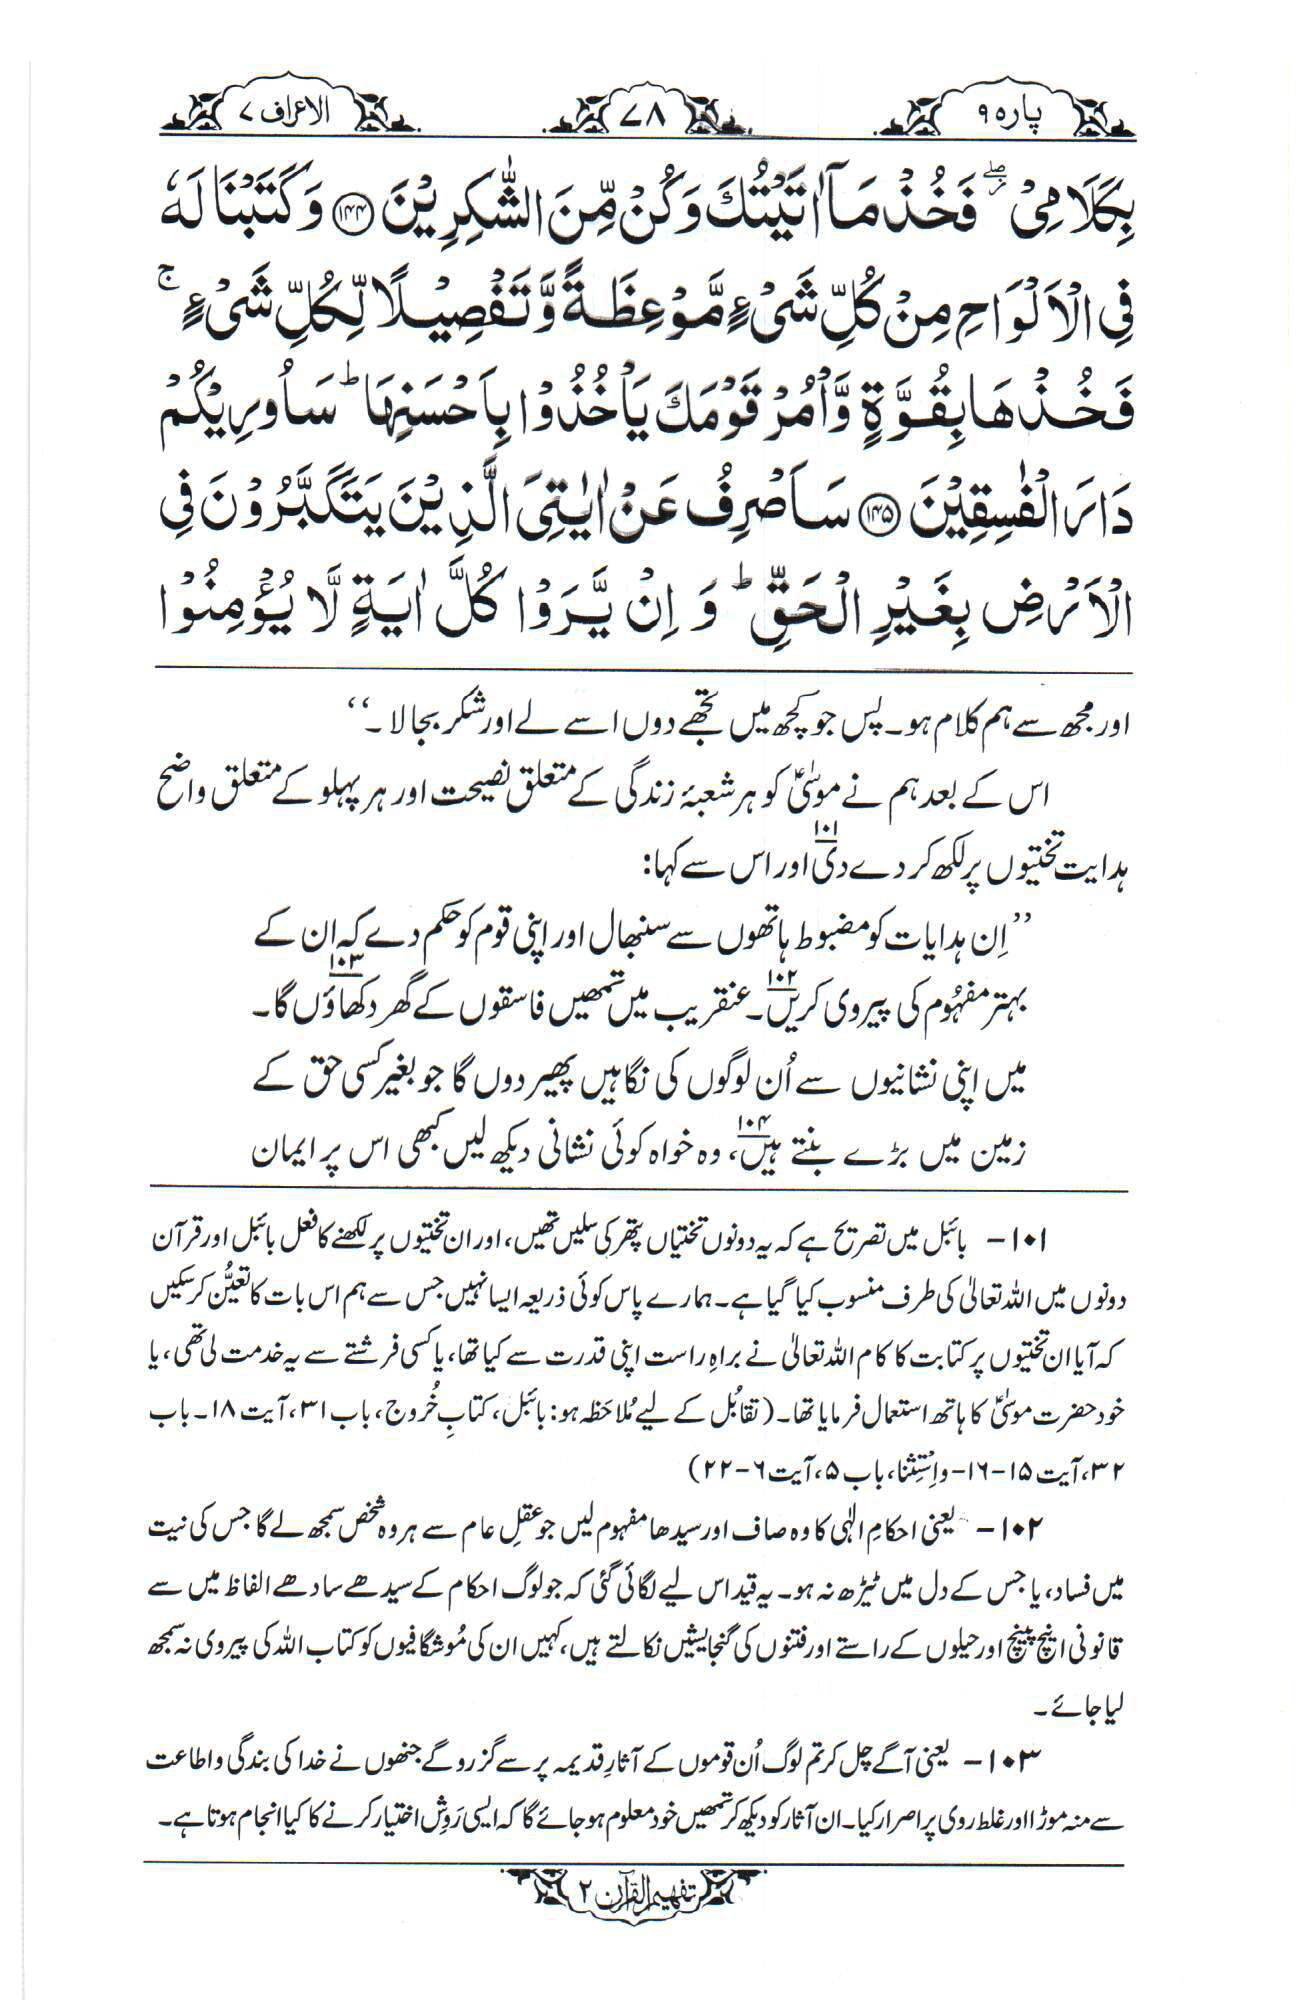 پارہ ۹
۷۸
الاعراف ۷
بِكَلَامِىْ ۖ فَخُذْ مَاۤ اٰتَيْتُكَ وَكُنْ مِّنَ الشّٰكِرِيْنَ ﴿۱۴۴﴾ وَكَتَبْنَا لَهٗ
فِى الْاَلْوَاحِ مِنْ كُلِّ شَىْءٍ مَّوْعِظَةً وَّتَفْصِيْلًا لِّكُلِّ شَىْءٍ ۚ
فَخُذْهَا بِقُوَّةٍ وَّاْمُرْ قَوْمَكَ يَاْخُذُوْا بِاَحْسَنِهَا ؕ سَاُورِيْكُمْ
دَارَ الْفٰسِقِيْنَ ﴿۱۴۵﴾ سَاَصْرِفُ عَنْ اٰيٰتِىَ الَّذِيْنَ يَتَكَبَّرُوْنَ فِى
الْاَرْضِ بِغَيْرِ الْحَقِّ ؕ وَ اِنْ يَّرَوْا كُلَّ اٰيَةٍ لَّا يُؤْمِنُوْا
اور مجھ سے ہم کلام ہو۔ پس جو کچھ میں تجھے دوں اسے لے اور شکر بجا لا۔‘‘
اس کے بعد ہم نے موسٰیؑ کو ہر شعبۂ زندگی کے متعلق نصیحت اور ہر پہلو کے متعلق واضح
ہدایت تختیوں پر لکھ کر دے دی۱۰۱ اور اس سے کہا:
’’اِن ہدایات کو مضبوط ہاتھوں سے سنبھال اور اپنی قوم کو حکم دے کہ ان کے
بہتر مفہُوم کی پیروی کریں۱۰۲۔ عنقریب میں تمھیں فاسقوں کے گھر دکھاؤں گا۱۰۳۔
میں اپنی نشانیوں سے اُن لوگوں کی نگاہیں پھیر دوں گا جو بغیر کسی حق کے
زمین میں بڑے بنتے ہیں۱۰۴، وہ خواہ کوئی نشانی دیکھ لیں کبھی اس پر ایمان
۱۰۱- بائبل میں تصریح ہے کہ یہ دونوں تختیاں پتھر کی سلیں تھیں، اور ان تختیوں پر لکھنے کا فعل بائبل اور قرآن
دونوں میں اللہ تعالیٰ کی طرف منسوب کیا گیا ہے۔ ہمارے پاس کوئی ذریعہ ایسا نہیں جس سے ہم اس بات کا تعیُّن کر سکیں
کہ آیا ان تختیوں پر کتابت کا کام اللہ تعالیٰ نے براہِ راست اپنی قدرت سے کیا تھا، یا کسی فرشتے سے یہ خدمت لی تھی، یا
خود حضرت موسٰیؑ کا ہاتھ استعمال فرمایا تھا۔ (تقابُل کے لیے مُلاحَظہ ہو: بائبل، کتابِ خُروج، باب ۳۱، آیت ۱۸۔ باب
۳۲، آیت ۱۵-۱۶- و اِستِثنا، باب ۵، آیت ۶-۲۲)
۱۰۲- یعنی احکامِ الٰہی کا وہ صاف اور سیدھا مفہوم لیں جو عقلِ عام سے ہر وہ شخص سمجھ لے گا جس کی نیت
میں فساد، یا جس کے دل میں ٹیڑھ نہ ہو۔ یہ قید اس لیے لگائی گئی کہ جو لوگ احکام کے سیدھے سادھے الفاظ میں سے
قانونی اینچ پینچ اور حیلوں کے راستے اور فتنوں کی گنجایشیں نکالتے ہیں، کہیں ان کی مُوشگافیوں کو کتاب اللہ کی پیروی نہ سمجھ
لیا جائے۔
۱۰۳- یعنی آگے چل کر تم لوگ اُن قوموں کے آثارِ قدیمہ پر سے گزرو گے جنھوں نے خدا کی بندگی و اطاعت
سے منہ موڑا اور غلط روی پر اصرار کیا۔ ان آثار کو دیکھ کر تمھیں خود معلوم ہو جائے گا کہ ایسی رَوِش اختیار کرنے کا کیا انجام ہوتا ہے۔
تفہیم القرآن ۲